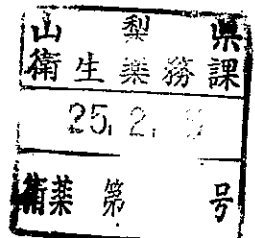 山梨県
衛生薬務課
25. 2.
衛薬第 号